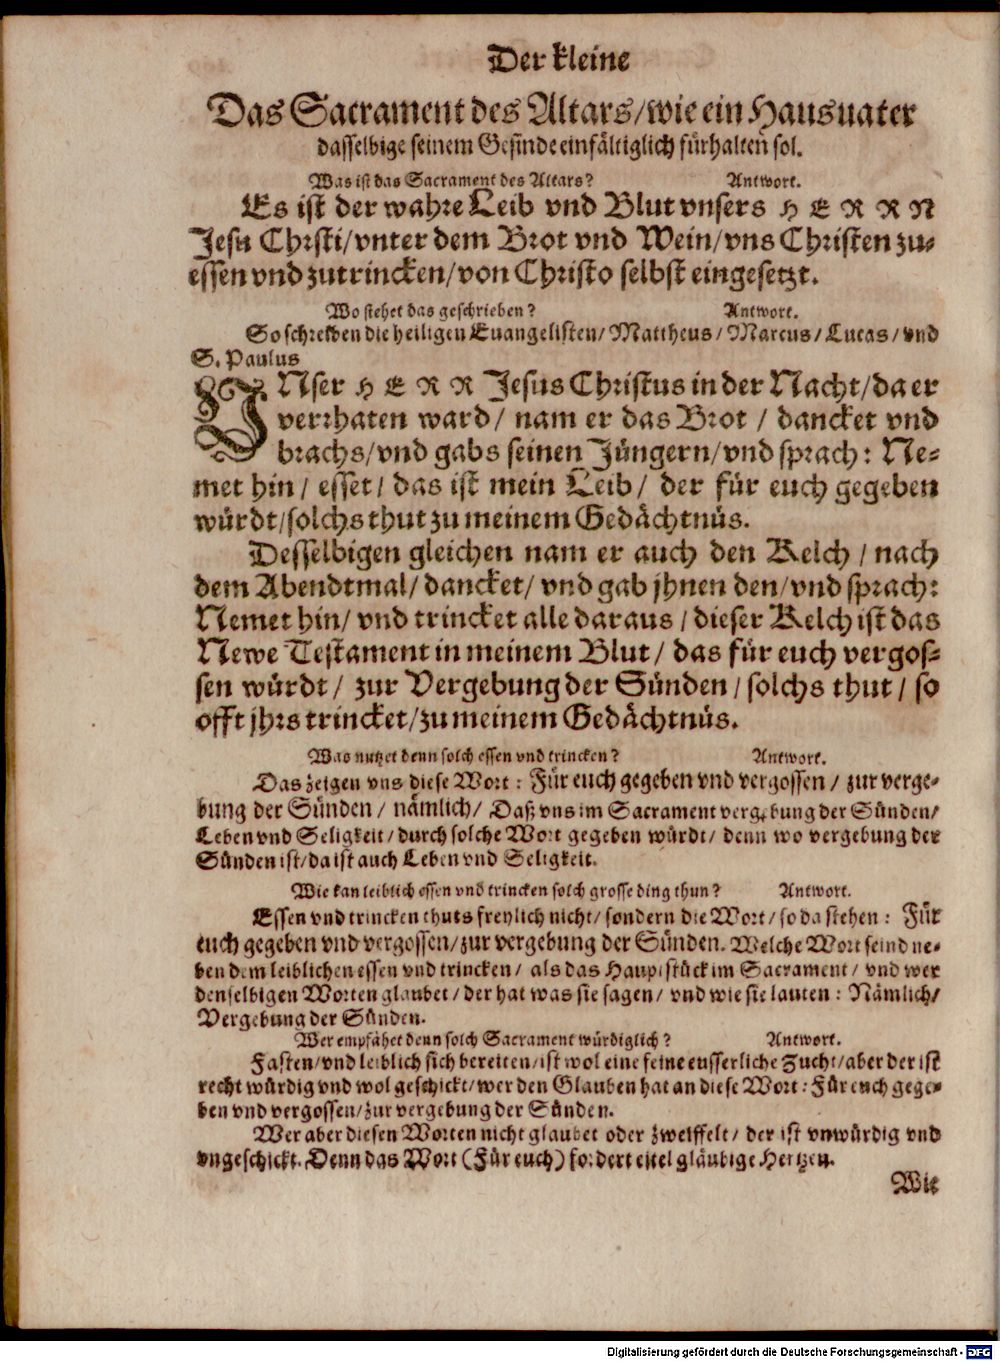 Der kleine
Das Sacrament des Altars/wie ein Hausuater
dasselbige seinem Gesinde einfältiglich fürhalten sol.
Was ist das Sacrament des Altars? Antwort.
Es ist der wahre Leib vnd Blut vnsers HERRN
Jesu Chrsti/vnter dem Brot vnd Wein/vns Christen zu-
essen vnd zutrincken/von Christo selbst eingesetzt.
Wo stehet das geschrieben? Antwort.
So schreiben die heiligen Euangelisten/Mattheus/Marcus/Lucas/vnd
S. Paulus
VNser HERR Jesus Christus in der Nacht/da er
verrhaten ward/ nam er das Brot / dancket vnd
brachs/vnd gabs seinen Jüngern/vnd sprach: Ne-
met hin/ esset/ das ist mein Leib/ der für euch gegeben
würdt/solchs thut zu meinem Gedächtnüs.
Desselbigen gleichen nam er auch den Kelch / nach
dem Abendtmal/dancket/ vnd gab jhnen den/vnd sprach:
Nemet hin/ vnd trincket alle daraus / dieser Kelch ist das
Newe Testament in meinem Blut / das für euch vergos-
sen würdt / zur Vergebung der Sünden / solchs thut / so
offt jhrs trincket/zu meinem Gedächtnüs.
Was nutzet denn solch essen vnd trincken? Antwort.
Das zeigen vns diese Wort: Für euch gegeben vnd vergossen / zur verge-
bung der Sünden / nämlich/ Daß vns im Sacrament vergebung der Sünden/
Leben vnd Seligkeit/durch solche Wort gegeben würdt/ denn wo vergebung der
Sünden ist/da ist auch Leben vnd Seligkeit.
Wie kan leiblich essen vnd trincken solch grosse ding thun? Antwort.
Essen vnd trincken thuts freylich nicht/sondern die Wort/so da stehen: Für
euch gegeben vnd vergossen/zur vergebung der Sünden. Welche Wort seind ne-
ben dem leiblichen essen vnd trincken/ als das Hauptstück im Sacrament/ vnd wer
denselbigen Worten glaubet/der hat was sie sagen/ vnd wie sie lauten: Nämlich/
Vergebung der Sünden.
Wer empfähet denn solch Sacrament würdiglich? Antwort.
Fasten/vnd leiblich sich bereiten/ist wol eine feine eusserliche Zucht/aber der ist
recht würdig vnd wol geschickt/wer den Glauben hat an diese Wort: Für euch gege-
ben vnd vergossen/zur vergebung der Sünden.
Wer aber diesen Worten nicht glaubet oder zweiffelt/ der ist vnwürdig vnd
vngeschickt. Denn das Wort (Für euch) fordert eitel gläubige Hertzen.
Wie
Digitalisierung gefördert durch die Deutsche Forschungsgemeinschaft - DFG